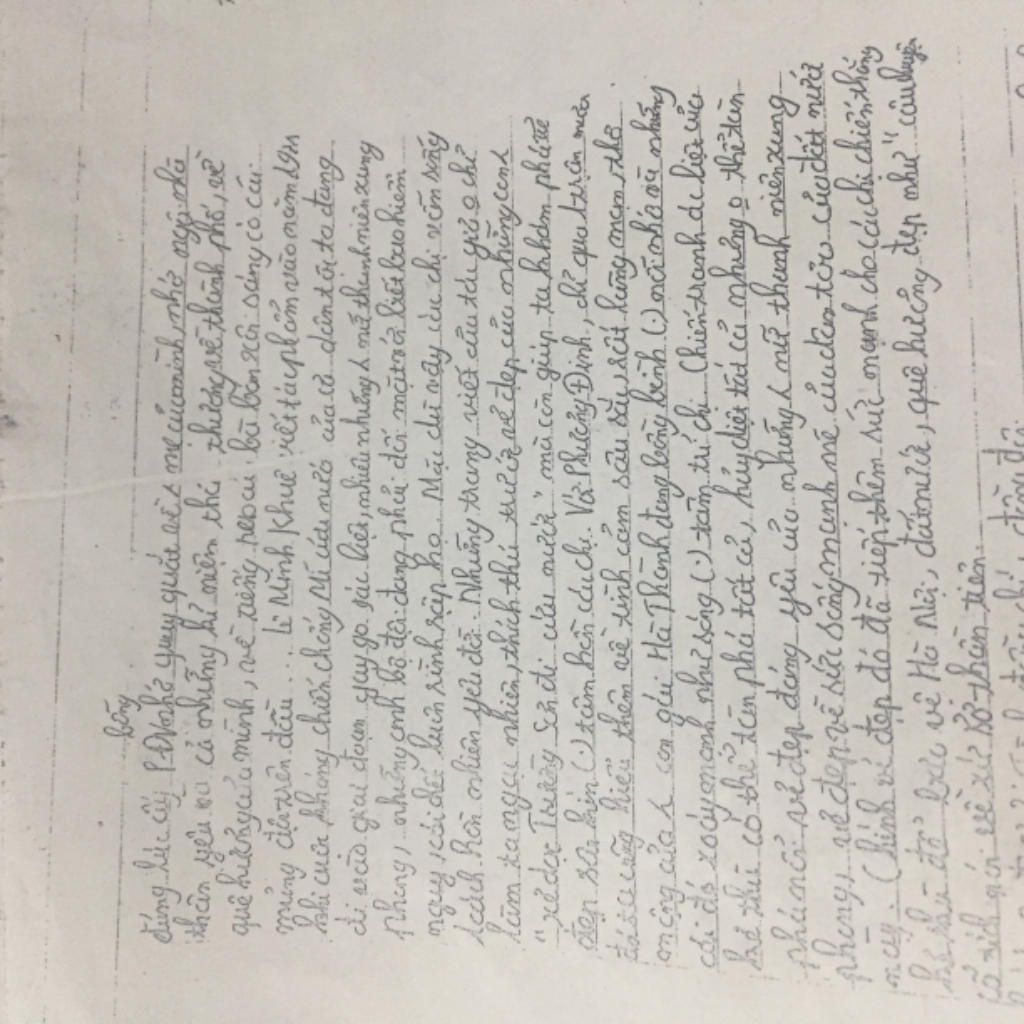 bỗng
đúng lúc ấy, PĐ nhớ quay quắt về mẹ của mình, nhớ ngôi nhà
thân yêu và cả những kỉ niệm thơ thương về thành phố, về
quê hương của mình, về tiếng rao của bà bán xôi sáng có cái
mủng đội trên đầu... Lê Minh Khuê viết tác phẩm vào năm 1971
khi cuộc kháng chiến chống Mĩ cứu nước của cả dân tộc ta đang
đi vào giai đoạn gay go ác liệt, nhiều những nữ thanh niên xung
phong, những anh bộ đội đang phải đối mặt với biết bao hiểm
nguy, cái chết luôn rình rập họ. Mặc dù vậy các chị vẫn sống
cách hồn nhiên yêu đời. Những trang viết của tác giả chỉ
làm ta ngạc nhiên, thích thú trước vẻ đẹp của những con
"xẻ dọc Trường Sơn đi cứu nước" mà còn giúp ta khám phá vẻ
đẹp tâm hồn các chị. Và Phương Định, chỉ qua trận mưa
đá ta càng hiểu thêm về tình cảm sâu sắc, sự lãng mạn, thơ
mộng của cô con gái Hà Thành đang bồng bềnh nỗi nhớ và những
cái đó xoáy mạnh như sóng tâm trí chị. Chiến tranh dù hiện của
kẻ thù có thể tàn phá tất cả, huỷ diệt tất cả nhưng o thể tàn
phá nổi vẻ đẹp đáng yêu của những nữ thanh niên xung
phong, vẻ đẹp về sức sống mạnh mẽ của dân tộc của đất nước
này. Chính vẻ đẹp đó đã tiếp thêm sức mạnh cho các chị chiến thắng
kẻ thù để bảo vệ Hà Nội, đất nước, quê hương đẹp như "câu chuyện
cổ tích nói về xứ sở thần tiên.